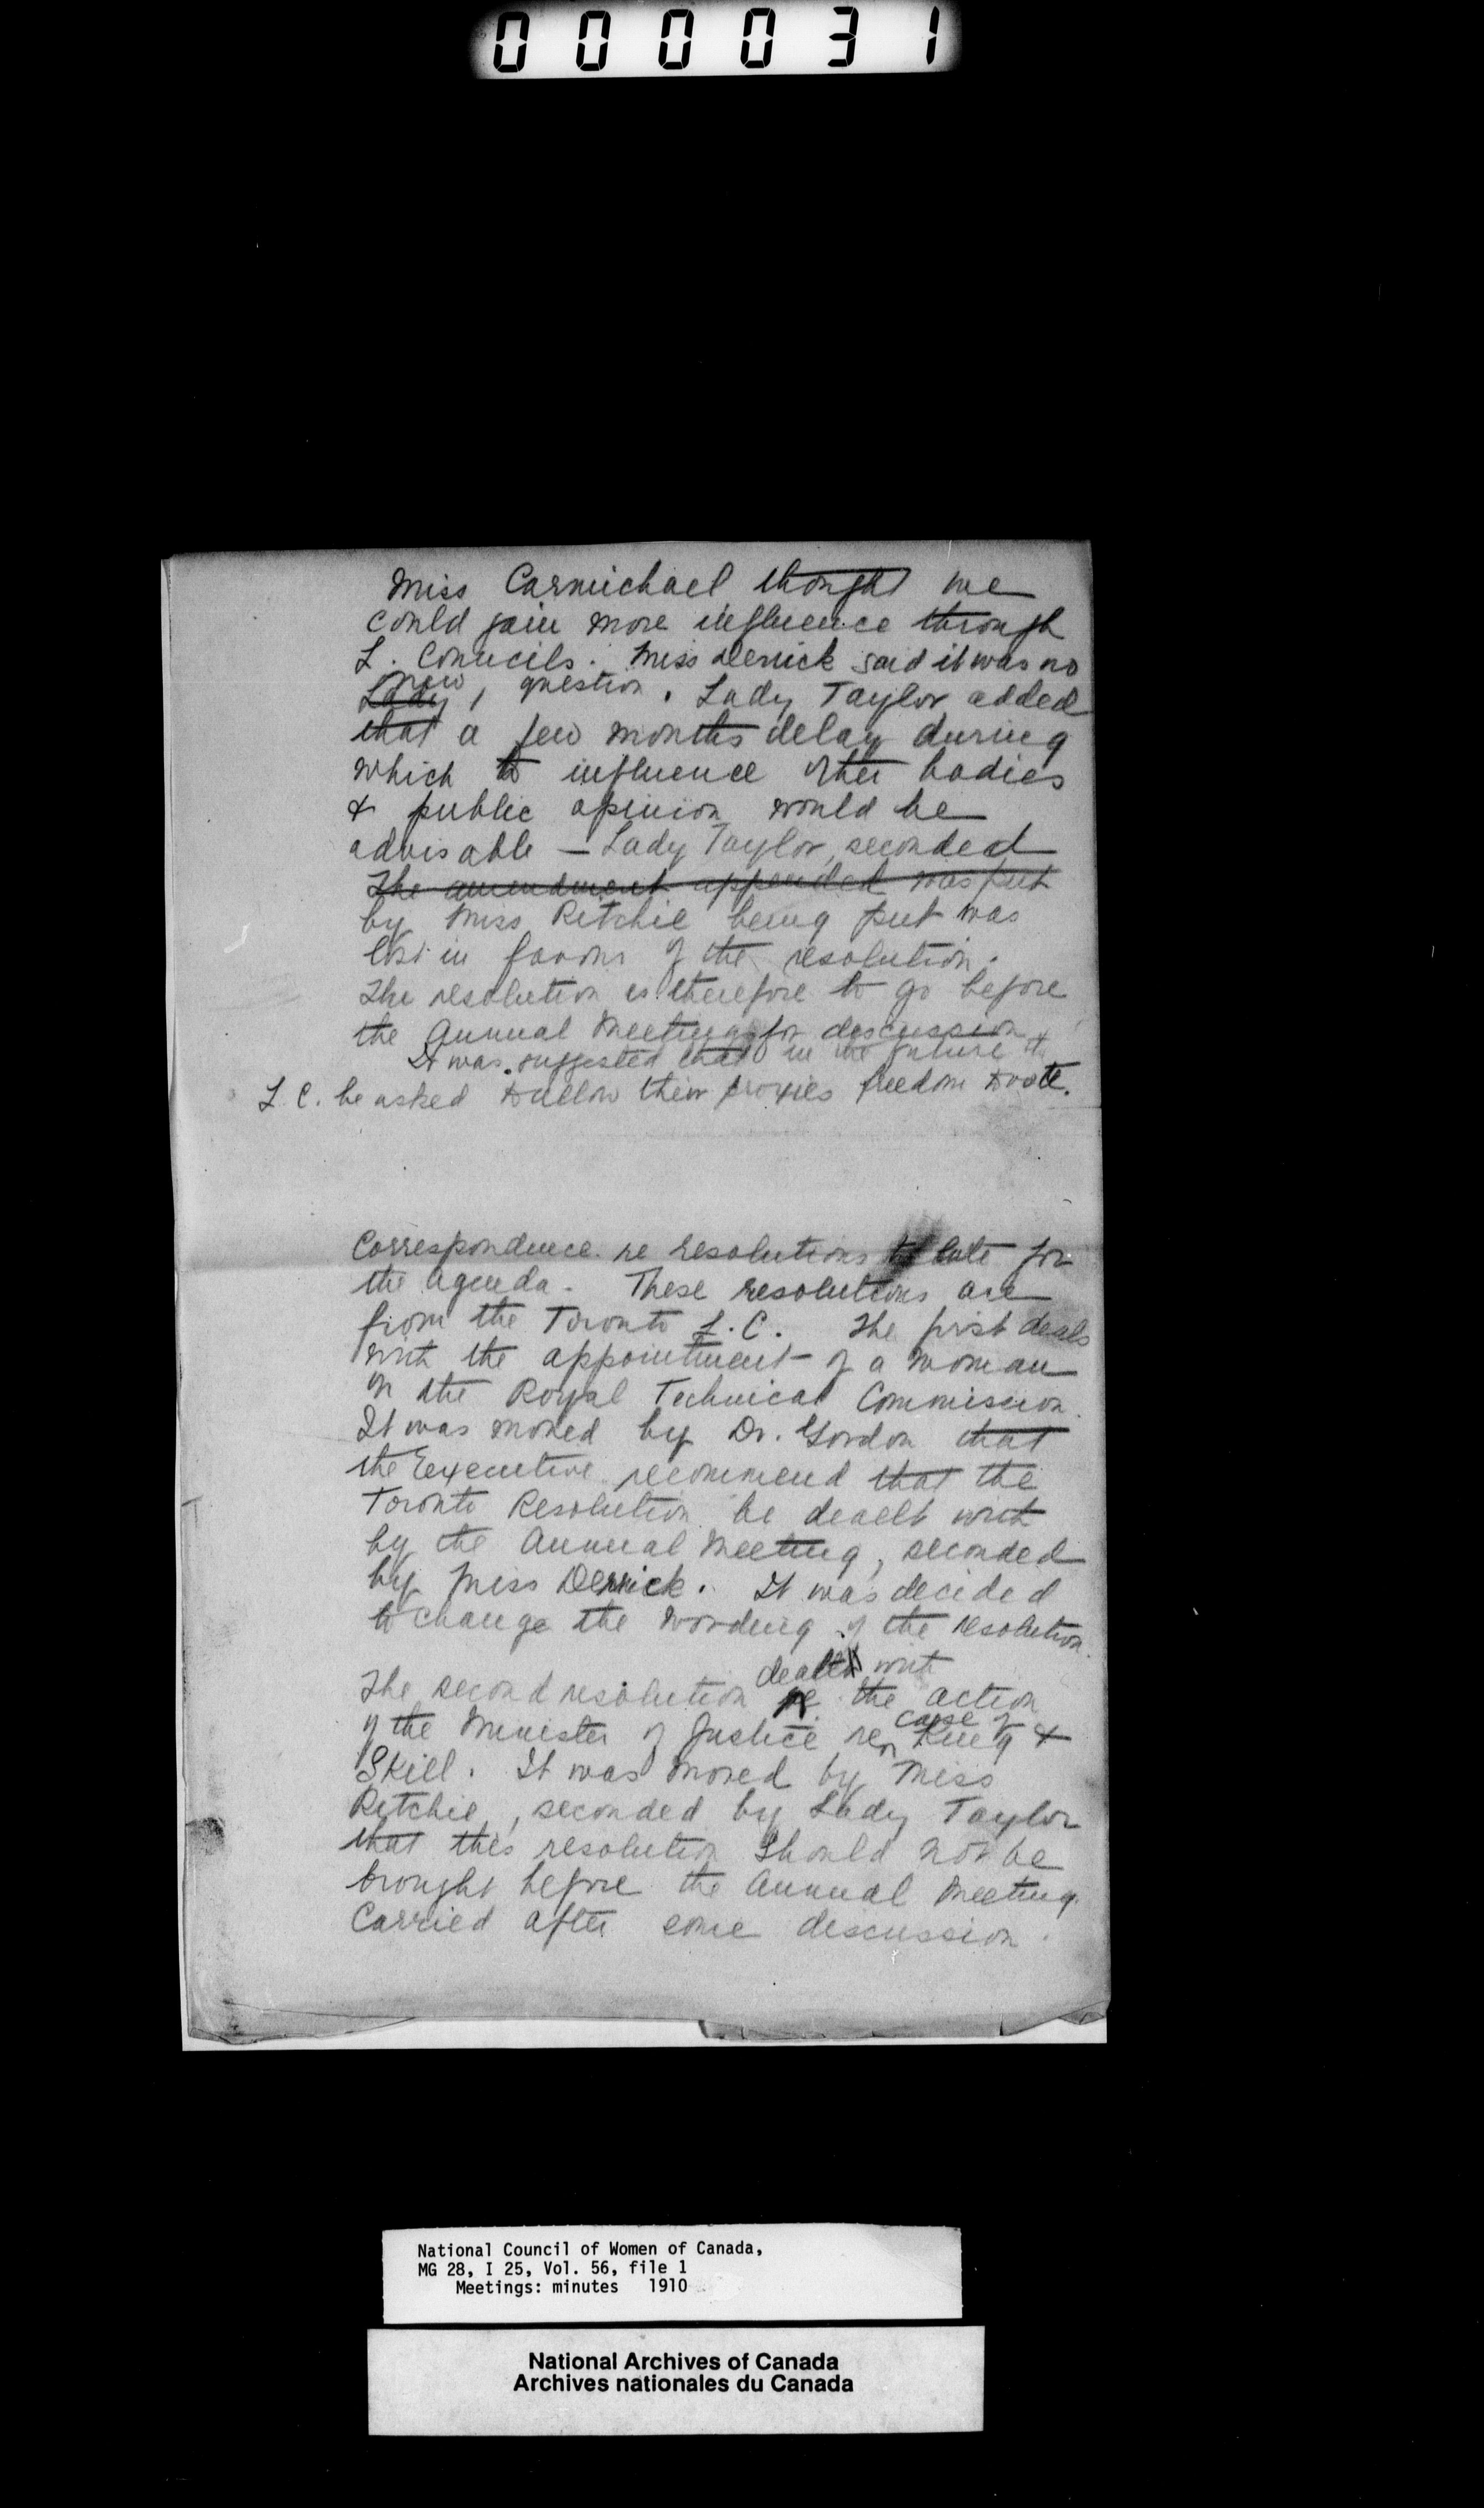 000031
Miss Carmichael thought we
could gain more influence through
L. Councils. Miss Derrick said it was no
new question. Lady Taylor added
that a few months delay during
which to influence other bodies
& public opinion would be
advisable — Lady Taylor, seconded
The amendment appended was put
by Miss Ritchie being put was
lost in favour of the resolution.
The resolution is therefore to go before
the Annual Meeting for discussion
It was suggested that in the future the
L. C. be asked to allow their proxies freedom to vote.
Correspondence re resolutions too late for
the agenda. These resolutions are
from the Toronto L. C. The first deals
with the appointment of a woman
on the Royal Technical Commission.
It was moved by Dr. Gordon that
the Executive recommend that the
Toronto Resolution be dealt with
by the Annual Meeting, seconded
by Miss Derrick. It was decided
to change the wording of the resolution.
dealt with
The second resolution the action
case of
of the Minister of Justice re King &
Skill. It was moved by Miss
Ritchie, seconded by Lady Taylor
that this resolution should not be
brought before the Annual Meeting.
Carried after some discussion.
National Council of Women of Canada,
MG 28, I 25, Vol. 56, file 1
Meetings: minutes 1910
National Archives of Canada
Archives nationales du Canada